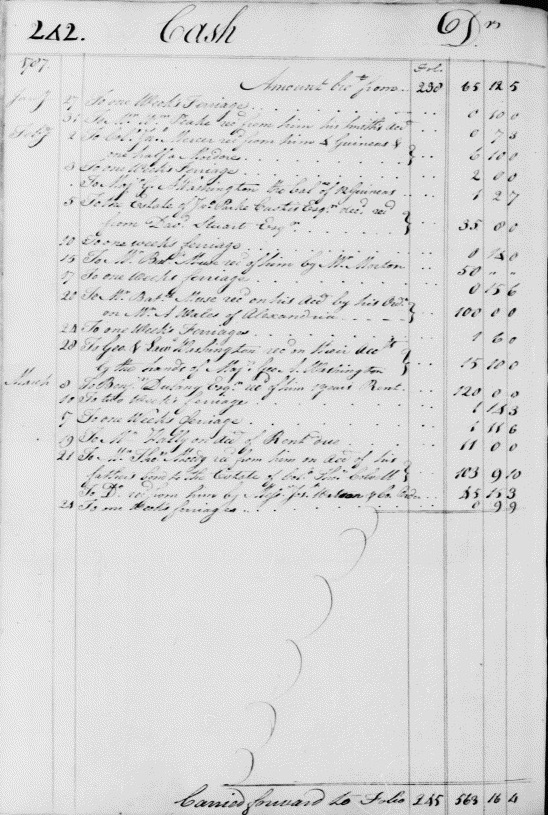 242. Cash Drs
1787. Fol.
Amount bro.t from 238 65 12 5
Jan.y 27 To one Weeks Ferriage 0 10 0
31 To Mr. Wm. Peake rec.d from him his Smiths Acc.t 0 7
Feb.y 2 To Col.o Mercer rec.d from him 4 Guineas &
one half a Moidore 6 10 0
3 To one Weeks Ferriage 2 0 0
To Maj.r G. Washington the bal. of 12 Guineas 1 2 7
5 To the Estate of Jn.o Parke Custis Esq.r dec.d rec.d
from Dav.d Stuart Esq.r 35 0 0
10 To one weeks ferriage 0 12 0
15 To Mr. Bat.t Muse rec.d of him by Mr. Morton 50 " "
17 To one Weeks ferriage 0 15 6
20 To Mr. Bat.t Muse rec.d on his Acc.t by his Ord.r
on Mr. A. Wales of Alexandria 100 0 0
24 To one Weeks Ferriages 1 6 0
28 To Geo. & Law.e Washington rec.d on their Acc.t
by the hands of Maj.r Geo. A. Washington 15 10 0
March 8 To Benj.n Dulany Esq.r rec.d of him Rent 120 0 0
10 To two Weeks ferriage 1 14 3
17 To one Weeks ferriage 1 11 6
19 To Mr. Lally on Acc.t of Rent due 11 0 0
21 To Mr. Tho.s rec.d from him on Acc.t of his
fathers Bond to the Estate of Col.o Tho.s Colvill 103 9 10
To D.o rec.d from him by Mess.rs Watson & Co. 45 15 3
24 To one Weeks ferriages 0 9 9
Carried forward to Folio 245 563 16 4